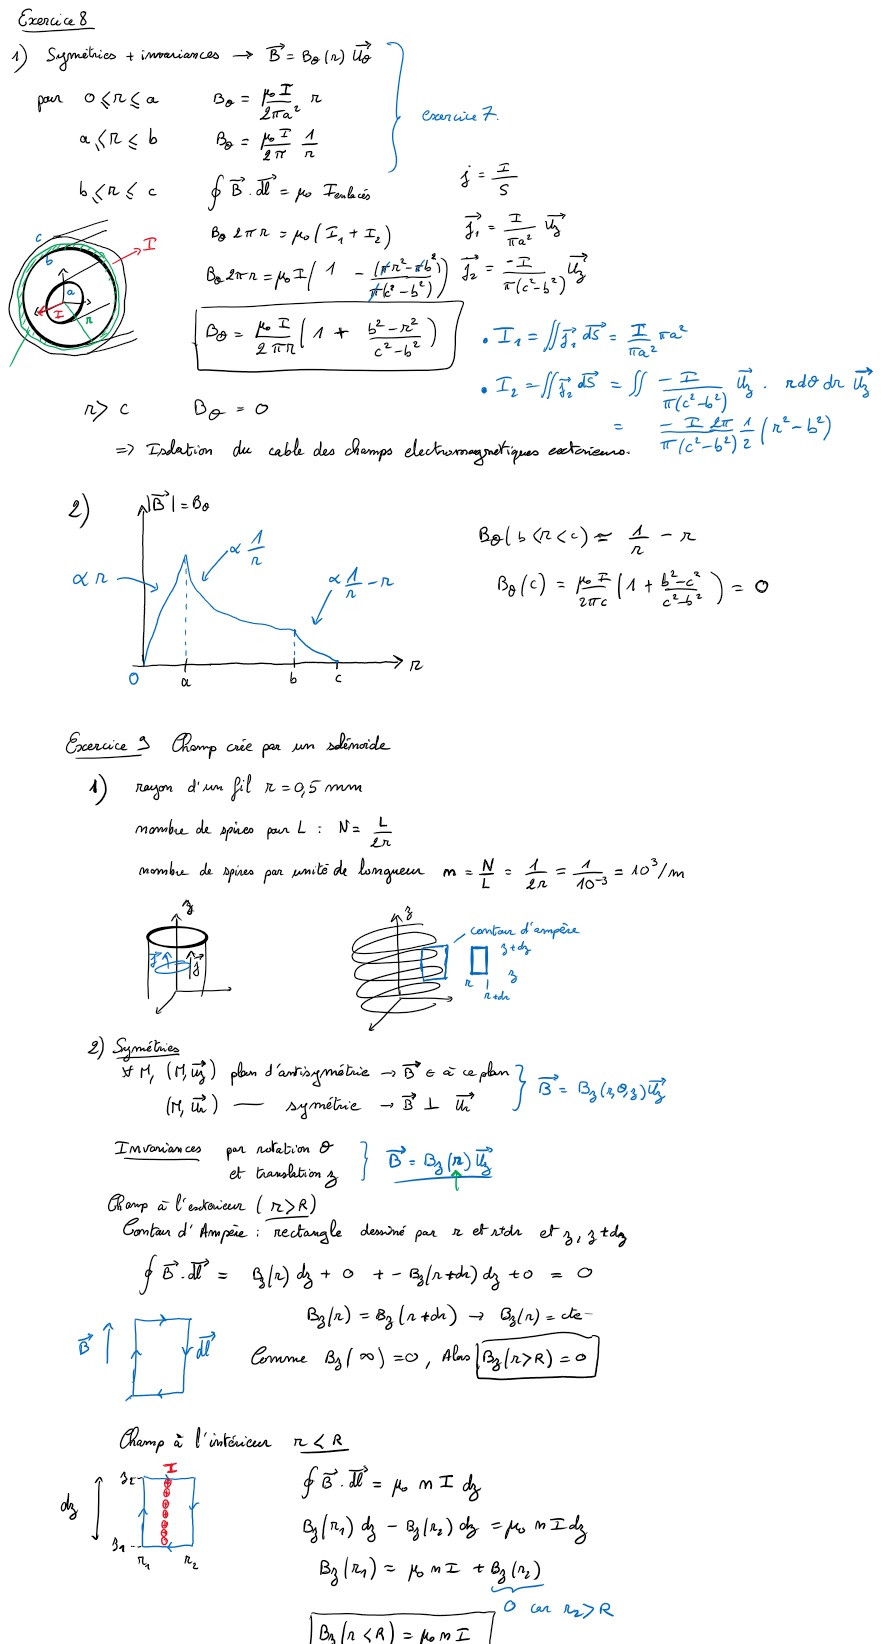 Exercice 8
1) Symétries + invariances → B⃗ = Bθ(r) u⃗θ
pour 0 ⩽ r ⩽ a Bθ = μ₀I/2πa² r
a ⩽ r ⩽ b Bθ = μ₀I/2π 1/r
exercice 7.
b ⩽ r ⩽ c ∮ B⃗ . dl⃗ = μ₀ Ienlacés
j = I/S
Bθ 2πr = μ₀(I₁ + I₂)
j⃗₁ = I/πa² u⃗z
Bθ 2πr = μ₀I(1 - (πr² - πb²)/π(c² - b²))
j⃗₂ = -I/π(c² - b²) u⃗z
Bθ = μ₀I/2πr (1 + b² - r²/c² - b²)
c b a I I r
• I₁ = ∬ j⃗₁ dS⃗ = I/πa² πa²
• I₂ = ∬ j⃗₂ dS⃗ = ∬ -I/π(c² - b²) u⃗z . rdθ dr u⃗z
= -I 2π/π(c² - b²) 1/2 (r² - b²)
r > c Bθ = 0
=> Isolation du cable des champs electromagnétiques exterieurs.
2) |B⃗| = Bθ
α r
α 1/r
α 1/r - r
0 a b c r
Bθ(b < r < c) ≈ 1/r - r
Bθ(c) = μ₀I/2πc (1 + b² - c²/c² - b²) = 0
Exercice 9 Champ crée par un solénoide
1) rayon d'un fil r = 0,5 mm
nombre de spires pour L : N = L/2r
nombre de spires par unité de longueur n = N/L = 1/2r = 1/10⁻³ = 10³/m
z
j⃗ j⃗
z
contour d'ampère
z+dz
z
r r+dr
2) Symétries
∀ M, (M, u⃗z) plan d'antisymétrie → B⃗ ∈ à ce plan
(M, u⃗r) — symétrie → B⃗ ⊥ u⃗r
B⃗ = Bz(r,θ,z) u⃗z
Invariances par rotation θ
et translation z
B⃗ = Bz(r) u⃗z
Champ à l'exterieur (r > R)
Contour d'Ampère : rectangle dessiné par r et r+dr et z, z+dz
∮ B⃗ . dl⃗ = Bz(r) dz + 0 + - Bz(r+dr) dz + 0 = 0
Bz(r) = Bz(r+dr) → Bz(r) = cte
B⃗ dl⃗
Comme Bz(∞) = 0, Alors Bz(r > R) = 0
Champ à l'intérieur r < R
I
z₂
dz
z₁
r₁ r₂
∮ B⃗ . dl⃗ = μ₀ n I dz
Bz(r₁) dz - Bz(r₂) dz = μ₀ n I dz
Bz(r₁) = μ₀ n I + Bz(r₂)
0 car r₂ > R
Bz(r < R) = μ₀ n I